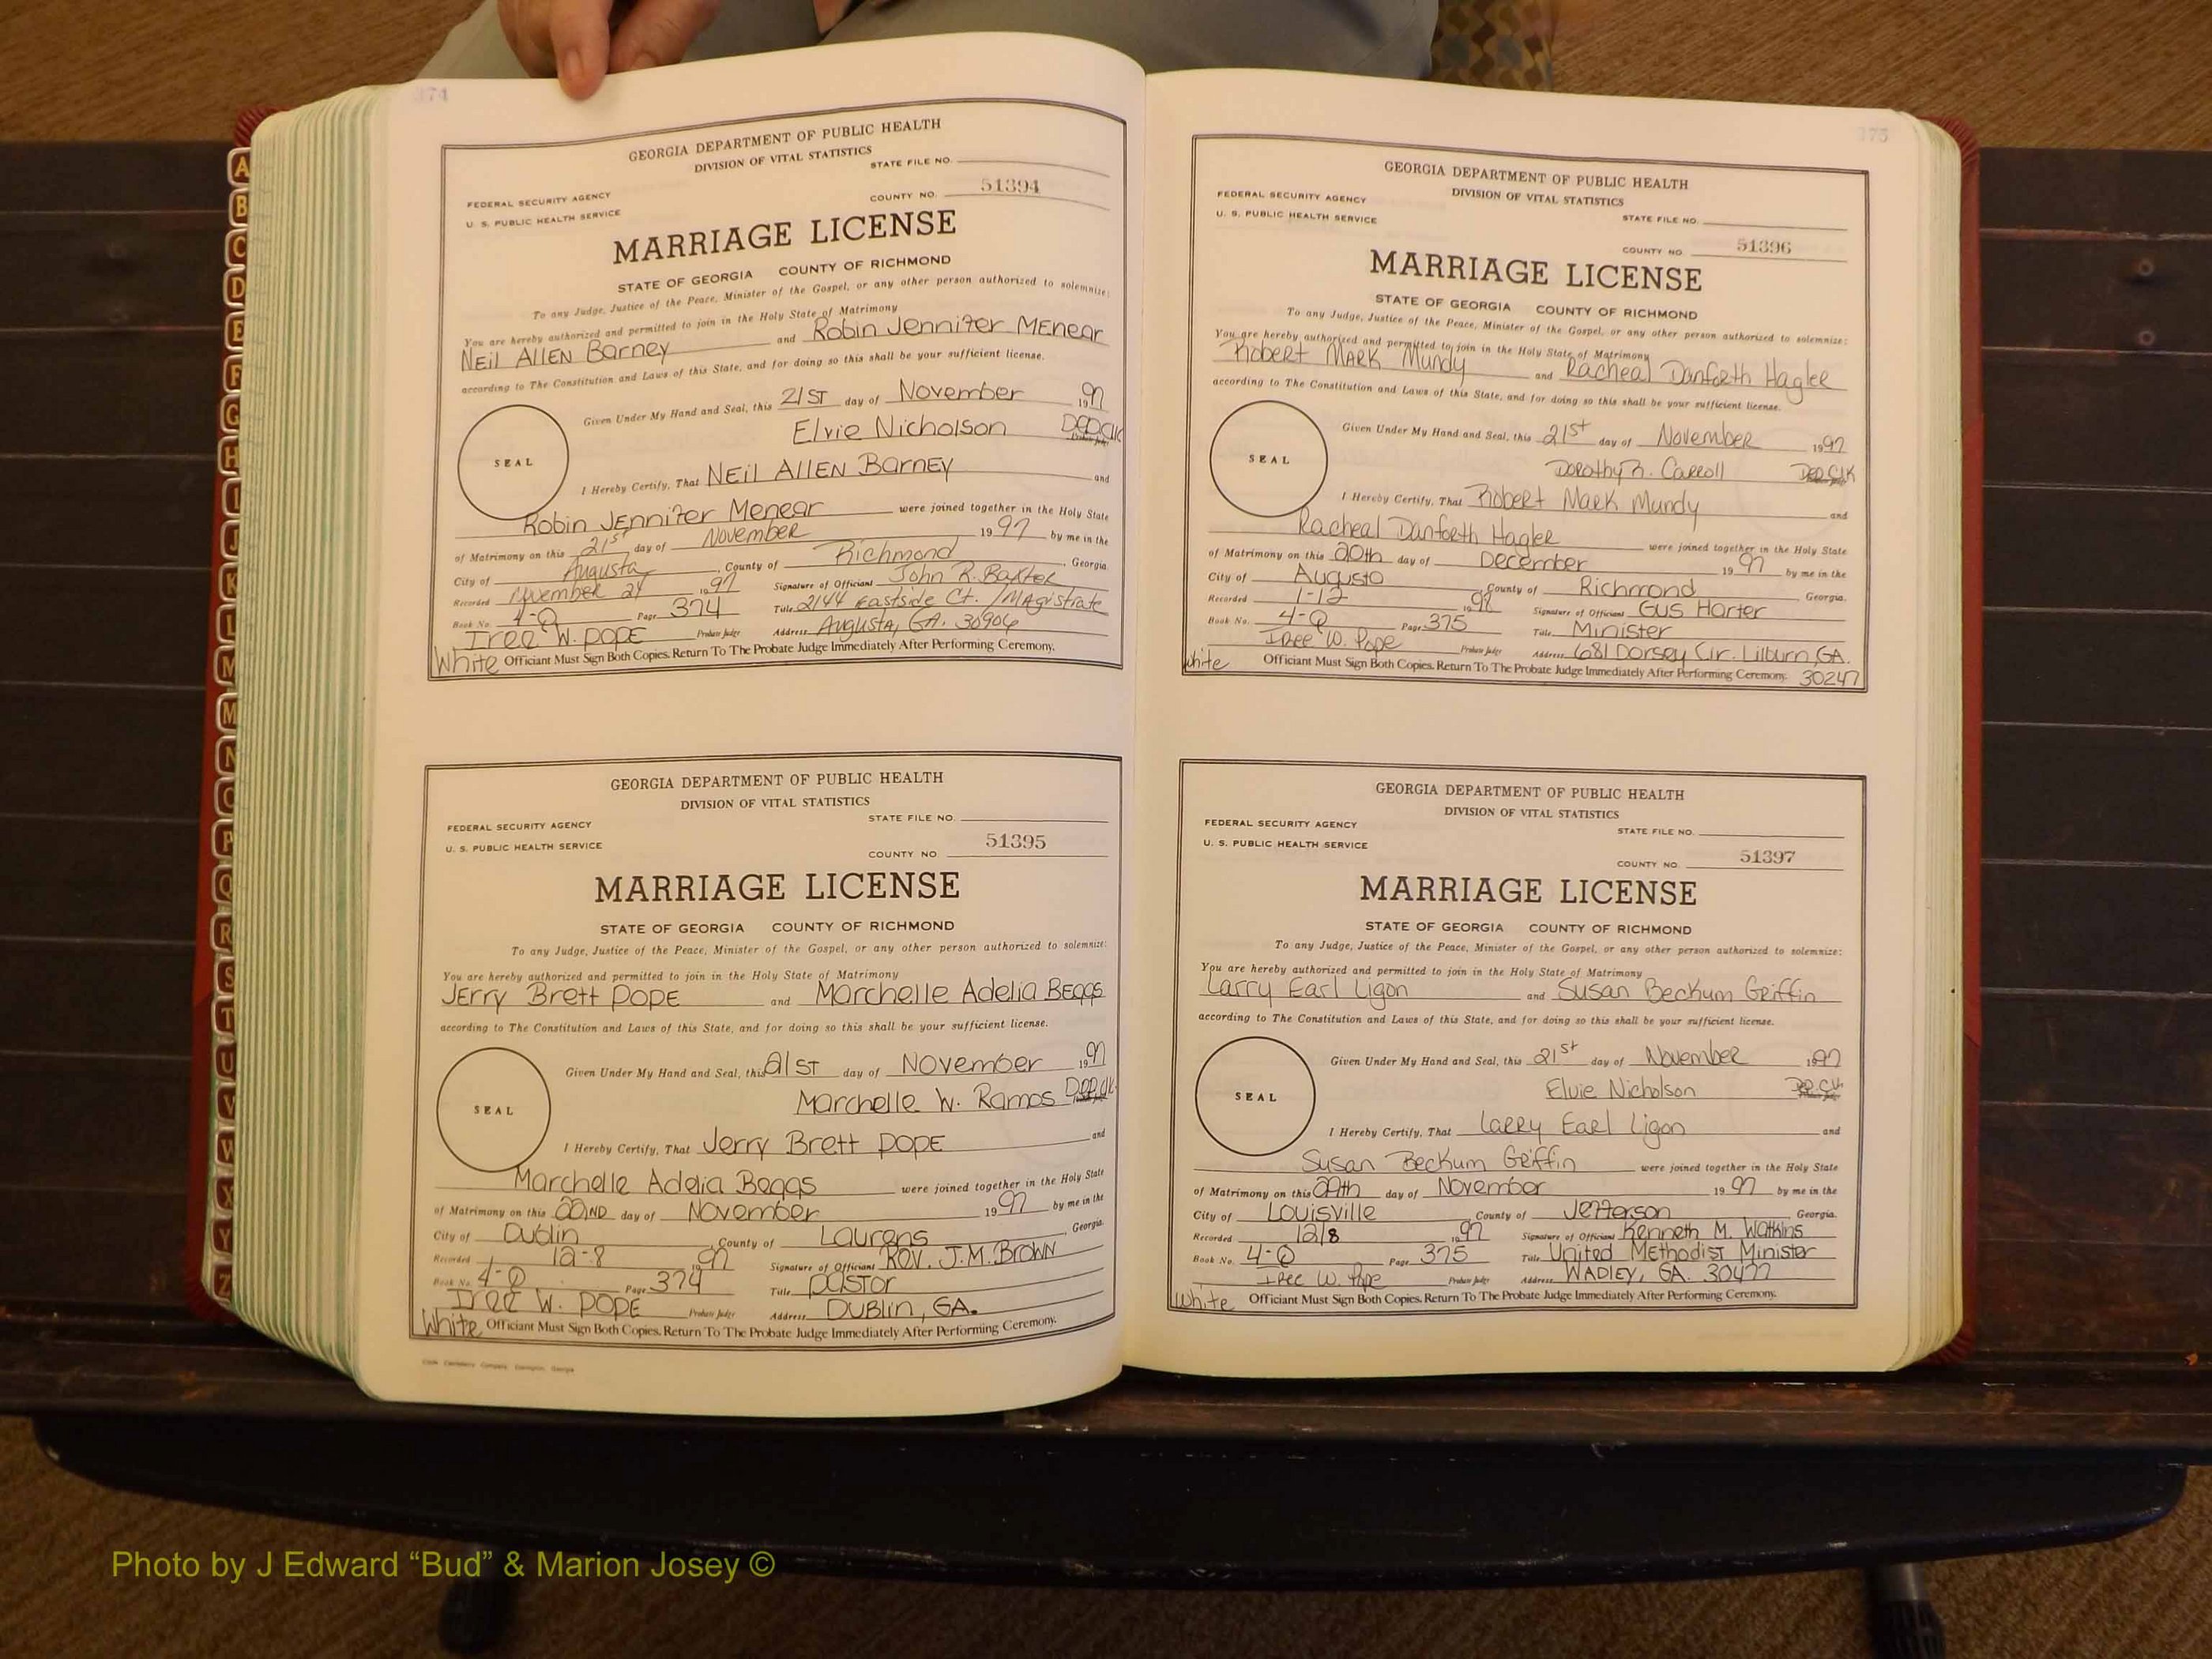 374
GEORGIA DEPARTMENT OF PUBLIC HEALTH
DIVISION OF VITAL STATISTICS
STATE FILE NO.
FEDERAL SECURITY AGENCY
COUNTY NO. 51394
U. S. PUBLIC HEALTH SERVICE
MARRIAGE LICENSE
STATE OF GEORGIA COUNTY OF RICHMOND
To any Judge, Justice of the Peace, Minister of the Gospel, or any other person authorized to solemnize:
You are hereby authorized and permitted to join in the Holy State of Matrimony
NEil AllEN Barney and Robin Jennifer MEnear
according to The Constitution and Laws of this State, and for doing so this shall be your sufficient license.
Given Under My Hand and Seal, this 21ST day of November 1997
Elvie Nicholson DEP.Clk
SEAL
I Hereby Certify, That NEil AllEN BarnEy and
Robin JEnnifer Menear were joined together in the Holy State
of Matrimony on this 21st day of November 1997 by me in the
City of Augusta, County of Richmond, Georgia.
Recorded November 24 1997 Signature of Officiant John R. Baxter
Book No. 4-Q Page 374 Title 2144 Eastside Ct. / Magistrate
Iree W. Pope Probate Judge Address Augusta, GA. 30904
White Officiant Must Sign Both Copies. Return To The Probate Judge Immediately After Performing Ceremony.
GEORGIA DEPARTMENT OF PUBLIC HEALTH
DIVISION OF VITAL STATISTICS
STATE FILE NO.
FEDERAL SECURITY AGENCY
U. S. PUBLIC HEALTH SERVICE
COUNTY NO 51395
MARRIAGE LICENSE
STATE OF GEORGIA COUNTY OF RICHMOND
To any Judge, Justice of the Peace, Minister of the Gospel, or any other person authorized to solemnize:
You are hereby authorized and permitted to join in the Holy State of Matrimony
JErry Brett Pope and Marchelle Adelia Beggs
according to The Constitution and Laws of this State, and for doing so this shall be your sufficient license.
Given Under My Hand and Seal, this 21ST day of November 1997
Marchelle W. Ramos Dep.Clk
SEAL
I Hereby Certify, That Jerry Brett Pope and
Marchelle Adelia Beggs were joined together in the Holy State
of Matrimony on this 22ND day of November 1997 by me in the
City of Dublin, County of Laurens, Georgia.
Recorded 12-8 1997 Signature of Officiant REV. J.M. BROWN
Book No. 4-Q Page 374 Title Pastor
Iree W. Pope Probate Judge Address DUBLIN, GA.
White Officiant Must Sign Both Copies. Return To The Probate Judge Immediately After Performing Ceremony.
375
GEORGIA DEPARTMENT OF PUBLIC HEALTH
DIVISION OF VITAL STATISTICS
FEDERAL SECURITY AGENCY
U. S. PUBLIC HEALTH SERVICE
STATE FILE NO.
COUNTY NO 51396
MARRIAGE LICENSE
STATE OF GEORGIA COUNTY OF RICHMOND
To any Judge, Justice of the Peace, Minister of the Gospel, or any other person authorized to solemnize:
You are hereby authorized and permitted to join in the Holy State of Matrimony
Robert Mark Mundy and Racheal Danforth Hagler
according to The Constitution and Laws of this State, and for doing so this shall be your sufficient license.
Given Under My Hand and Seal, this 21st day of November 1997
Dorothy R. Carroll Dep.Clk
SEAL
I Hereby Certify, That Robert Mark Mundy and
Racheal Danforth Hagler were joined together in the Holy State
of Matrimony on this 20th day of December 1997 by me in the
City of Augusta, County of Richmond Georgia.
Recorded 1-12 1998 Signature of Officiant Gus Harter
Book No. 4-Q Page 375 Title Minister
Iree W. Pope Probate Judge Address 681 Dorsey Cir. Lilburn, GA.
White Officiant Must Sign Both Copies. Return To The Probate Judge Immediately After Performing Ceremony. 30247
GEORGIA DEPARTMENT OF PUBLIC HEALTH
DIVISION OF VITAL STATISTICS
FEDERAL SECURITY AGENCY
STATE FILE NO.
U. S. PUBLIC HEALTH SERVICE
COUNTY NO. 51397
MARRIAGE LICENSE
STATE OF GEORGIA COUNTY OF RICHMOND
To any Judge, Justice of the Peace, Minister of the Gospel, or any other person authorized to solemnize:
You are hereby authorized and permitted to join in the Holy State of Matrimony
Larry Earl Ligon and Susan Beckum Griffin
according to The Constitution and Laws of this State, and for doing so this shall be your sufficient license.
Given Under My Hand and Seal, this 21st day of November 1997
Elvie Nicholson Dep.Clk.
SEAL
I Hereby Certify, That Larry Earl Ligon and
Susan Beckum Griffin were joined together in the Holy State
of Matrimony on this 29th day of November 1997 by me in the
City of Louisville County of Jefferson Georgia.
Recorded 12/8 1997 Signature of Officiant Kenneth M. Watkins
Book No. 4-Q Page 375 Title United Methodist Minister
Iree W. Pope Probate Judge Address WADLEY, GA. 30477
White Officiant Must Sign Both Copies. Return To The Probate Judge Immediately After Performing Ceremony.
A
B
C
D
E
F
G
H
I
J
K
L
M
M
N
O
P
Q
R
S
T
U
V
W
X
Y
Z
Photo by J Edward “Bud” & Marion Josey ©